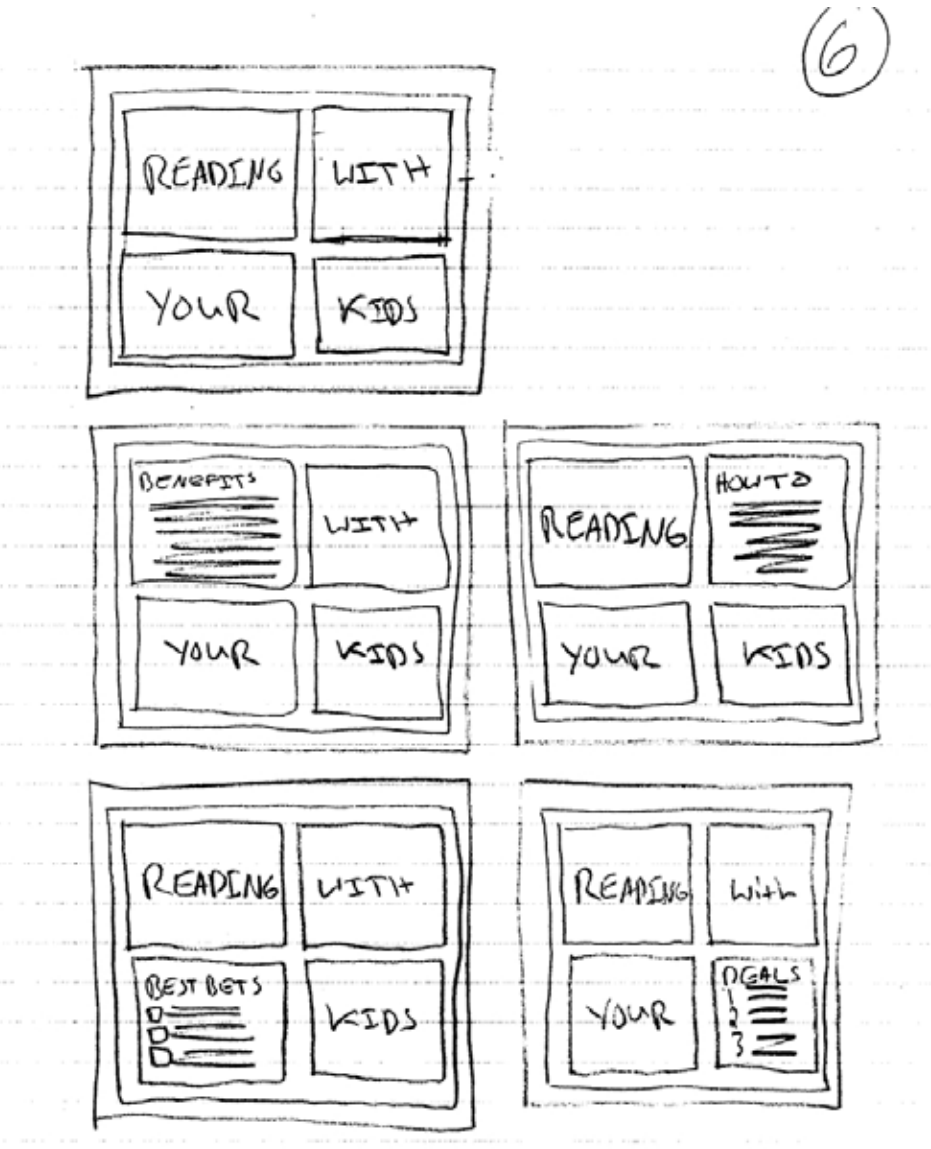 6
READING WITH
YOUR KIDS
BENEFITS
WITH
YOUR KIDS
HOW TO
READING
YOUR KIDS
READING WITH
BEST BETS
KIDS
READING with
YOUR
DEALS
1
2
3